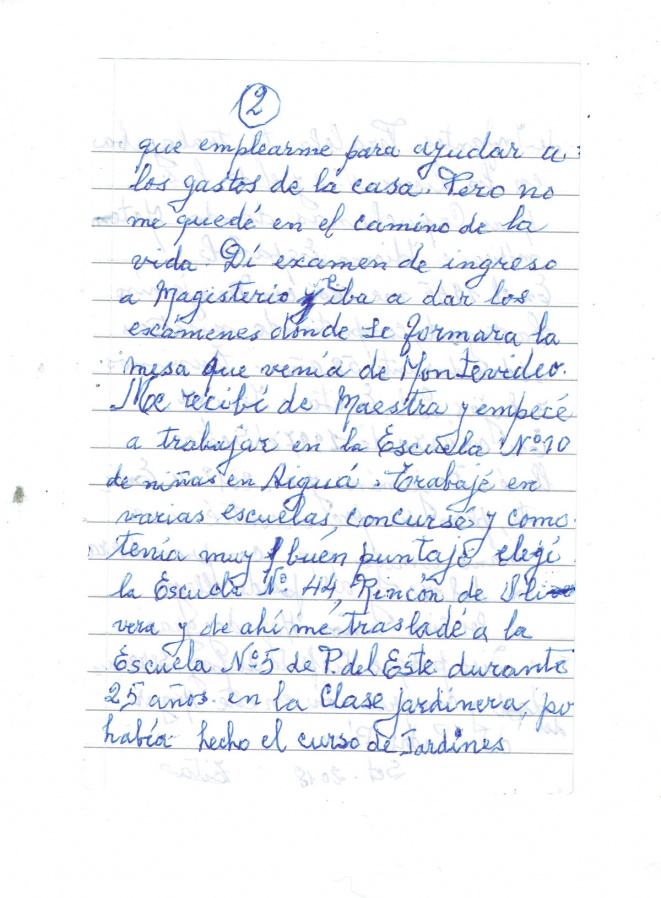 2
que emplearme para ayudar a
los gastos de la casa. Pero no
me quedé en el camino de la
vida. Dí examen de ingreso
a Magisterio y iba a dar los
exámenes dónde se formara la
mesa que venía de Montevideo.
Me recibí de Maestra y empecé
a trabajar en la Escuela Nº10
de niñas en Aiguá. Trabajé en
varias escuelas, concursé y como
tenía muy buén puntaje elegí
la Escuela Nº 44, Rincón de Oli
vera y de ahí me trasladé a la
Escuela Nº5 de P. del Este durante
25 años en la Clase jardinera, po
había hecho el curso de Jardines